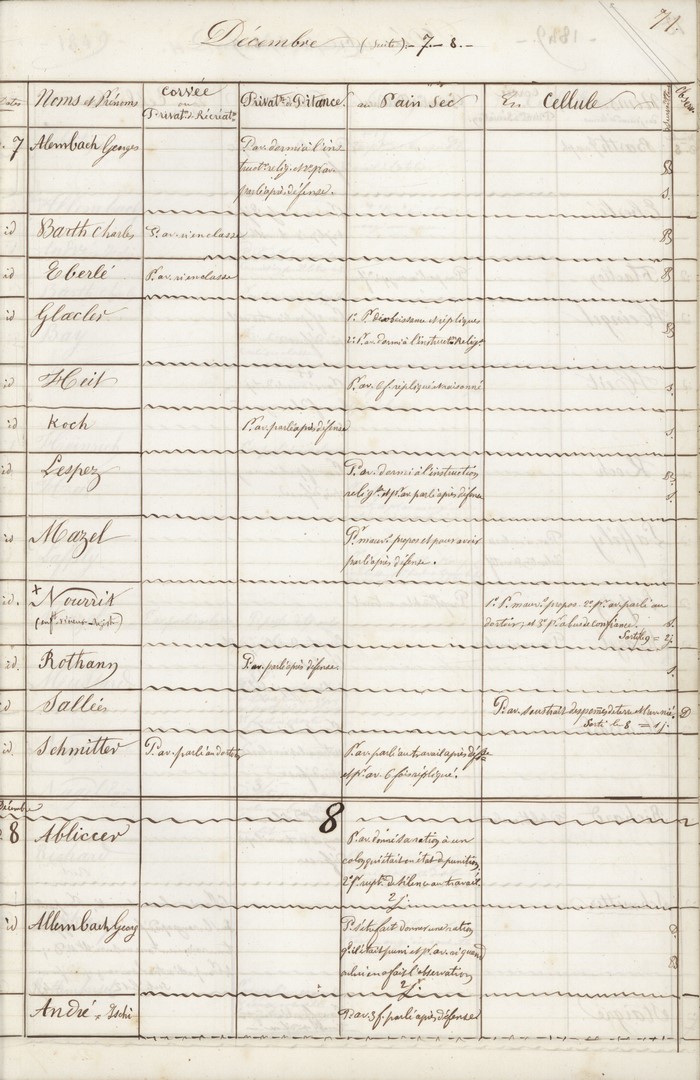 71.
Décembre (suite) - 7 - 8. -
Dates
Noms et Prénoms
Corvée
ou
Privat.n de Récréat.n
Privat.n de Pitance
au Pain Sec
En Cellule
7
Alembach Georges
P.r av. dormi à l'ins
truct.n relig. et 2.e p.r av.
parlé apr. défense.
id
Barth Charles
P.r av. ri en classe
id
Eberlé
P.r av. ri en classe
id
Glacler
1.e P.r et répliques
2.e P.r av. dormi à l'instruct.n Relig.se
id
Heit
P.r av. 6 f. répliqué et raisonné
s.
id
Koch
P.r av. parlé après défense
s.
id
Lespez
P.r av. dormi à l'instruction
relig.se et p.r av. parlé après défense
s.
id
Mazel
P.r mauv.s propos et pour avoir
parlé après défense.
id.
+
Nourrit
1.e P.r mauv.s propos. 2.e p.r av. parlé au
dortoir, et 3.e p.r abus de confiance.
Sorti le 9 = 2 j.
s.
id.
Rothann
P.r av. parlé après défense
s.
id
Sallées
P.r av. soustrait des pommes de terre et l'av. nié.
Sorti le 8 = 1 j.
D
id.
Schmitter
P.r av. parlé au dortoir
P.r av. parlé au travail après défse
et p.r av. 6 fois répliqué.
Décembre
8
8
Abliccer
P.r av. donné sa ration à un
colon qui était en état de punition,
2.e f. rupt. de silence au travail.
2 j.
id
Allembach Georg
P.r s'être fait donner une ration
q.d il était puni et p.r av. ri quand
on lui en a fait l'observation
2 j.
André
P.r av. 3 f. parlé après défense